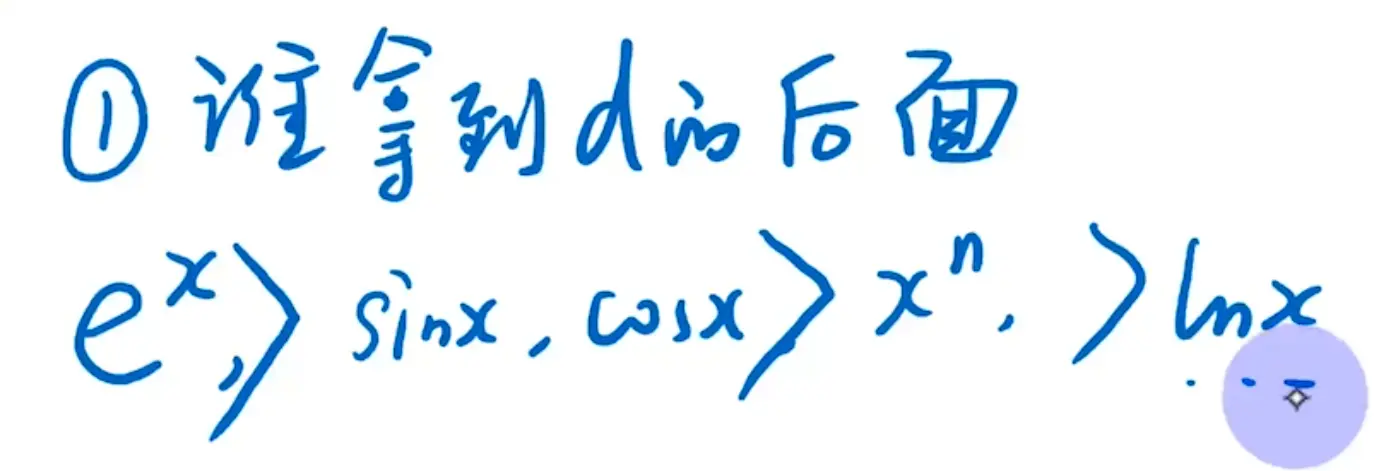 ① 谁拿到d的后面
e^x, > sinx, cosx > x^n, > lnx